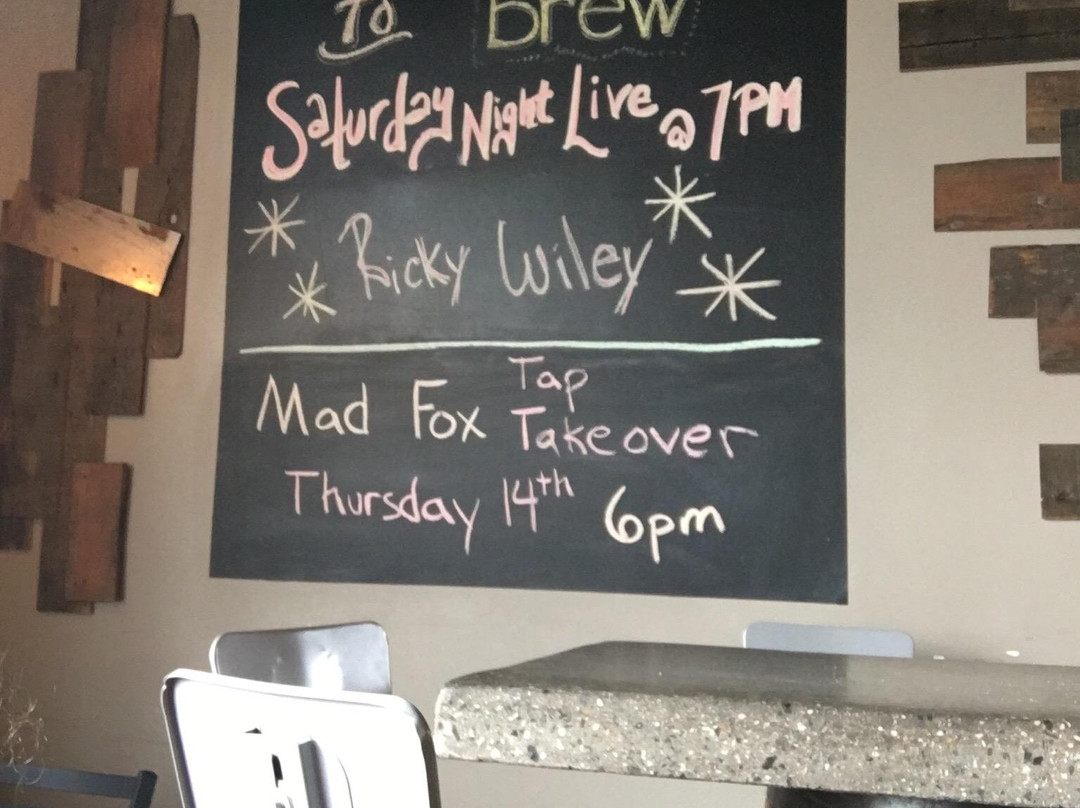 To Brew
Saturday Night Live @ 7PM
Ricky Wiley
Mad Fox Tap Takeover
Thursday 14th 6pm